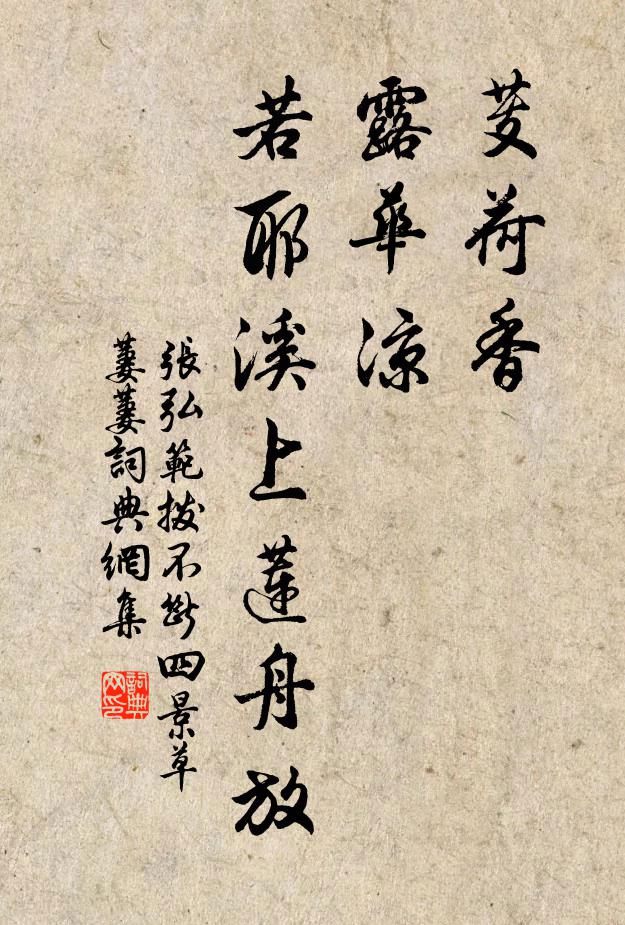 芰荷香
露華涼
若耶溪上蓮舟放
張弘範撥不斷四景草
萋萋詞典網集
詞典網印